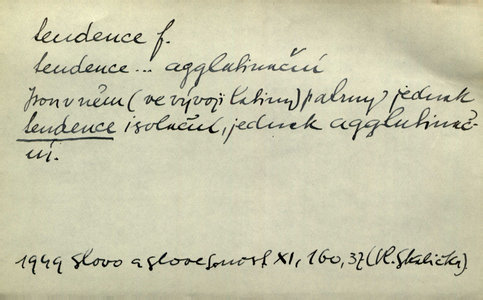 tendence f.
tendence... agglutinační
Jsou v něm (ve vývoji latiny) patrny jednak
tendence isolační, jednak agglutinač-
ní.
1949 Slovo a slovesnost XI, 160, 37 (Vl. Skalička)